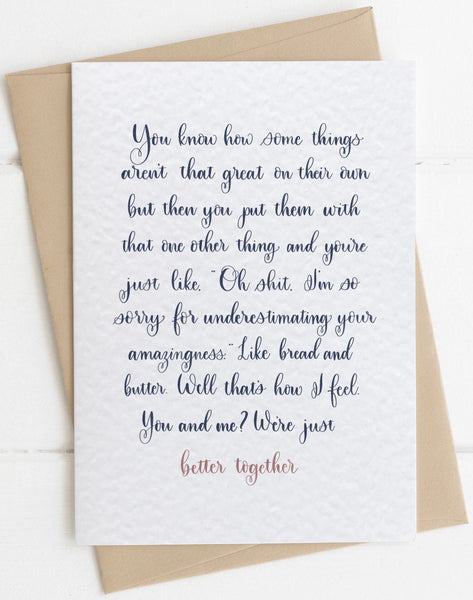 You know how some things
aren't that great on their own
but then you put them with
that one other thing and you're
just like, "Oh shit, I'm so
sorry for underestimating your
amazingness." Like bread and
butter. Well that's how I feel.
You and me? We're just
better together